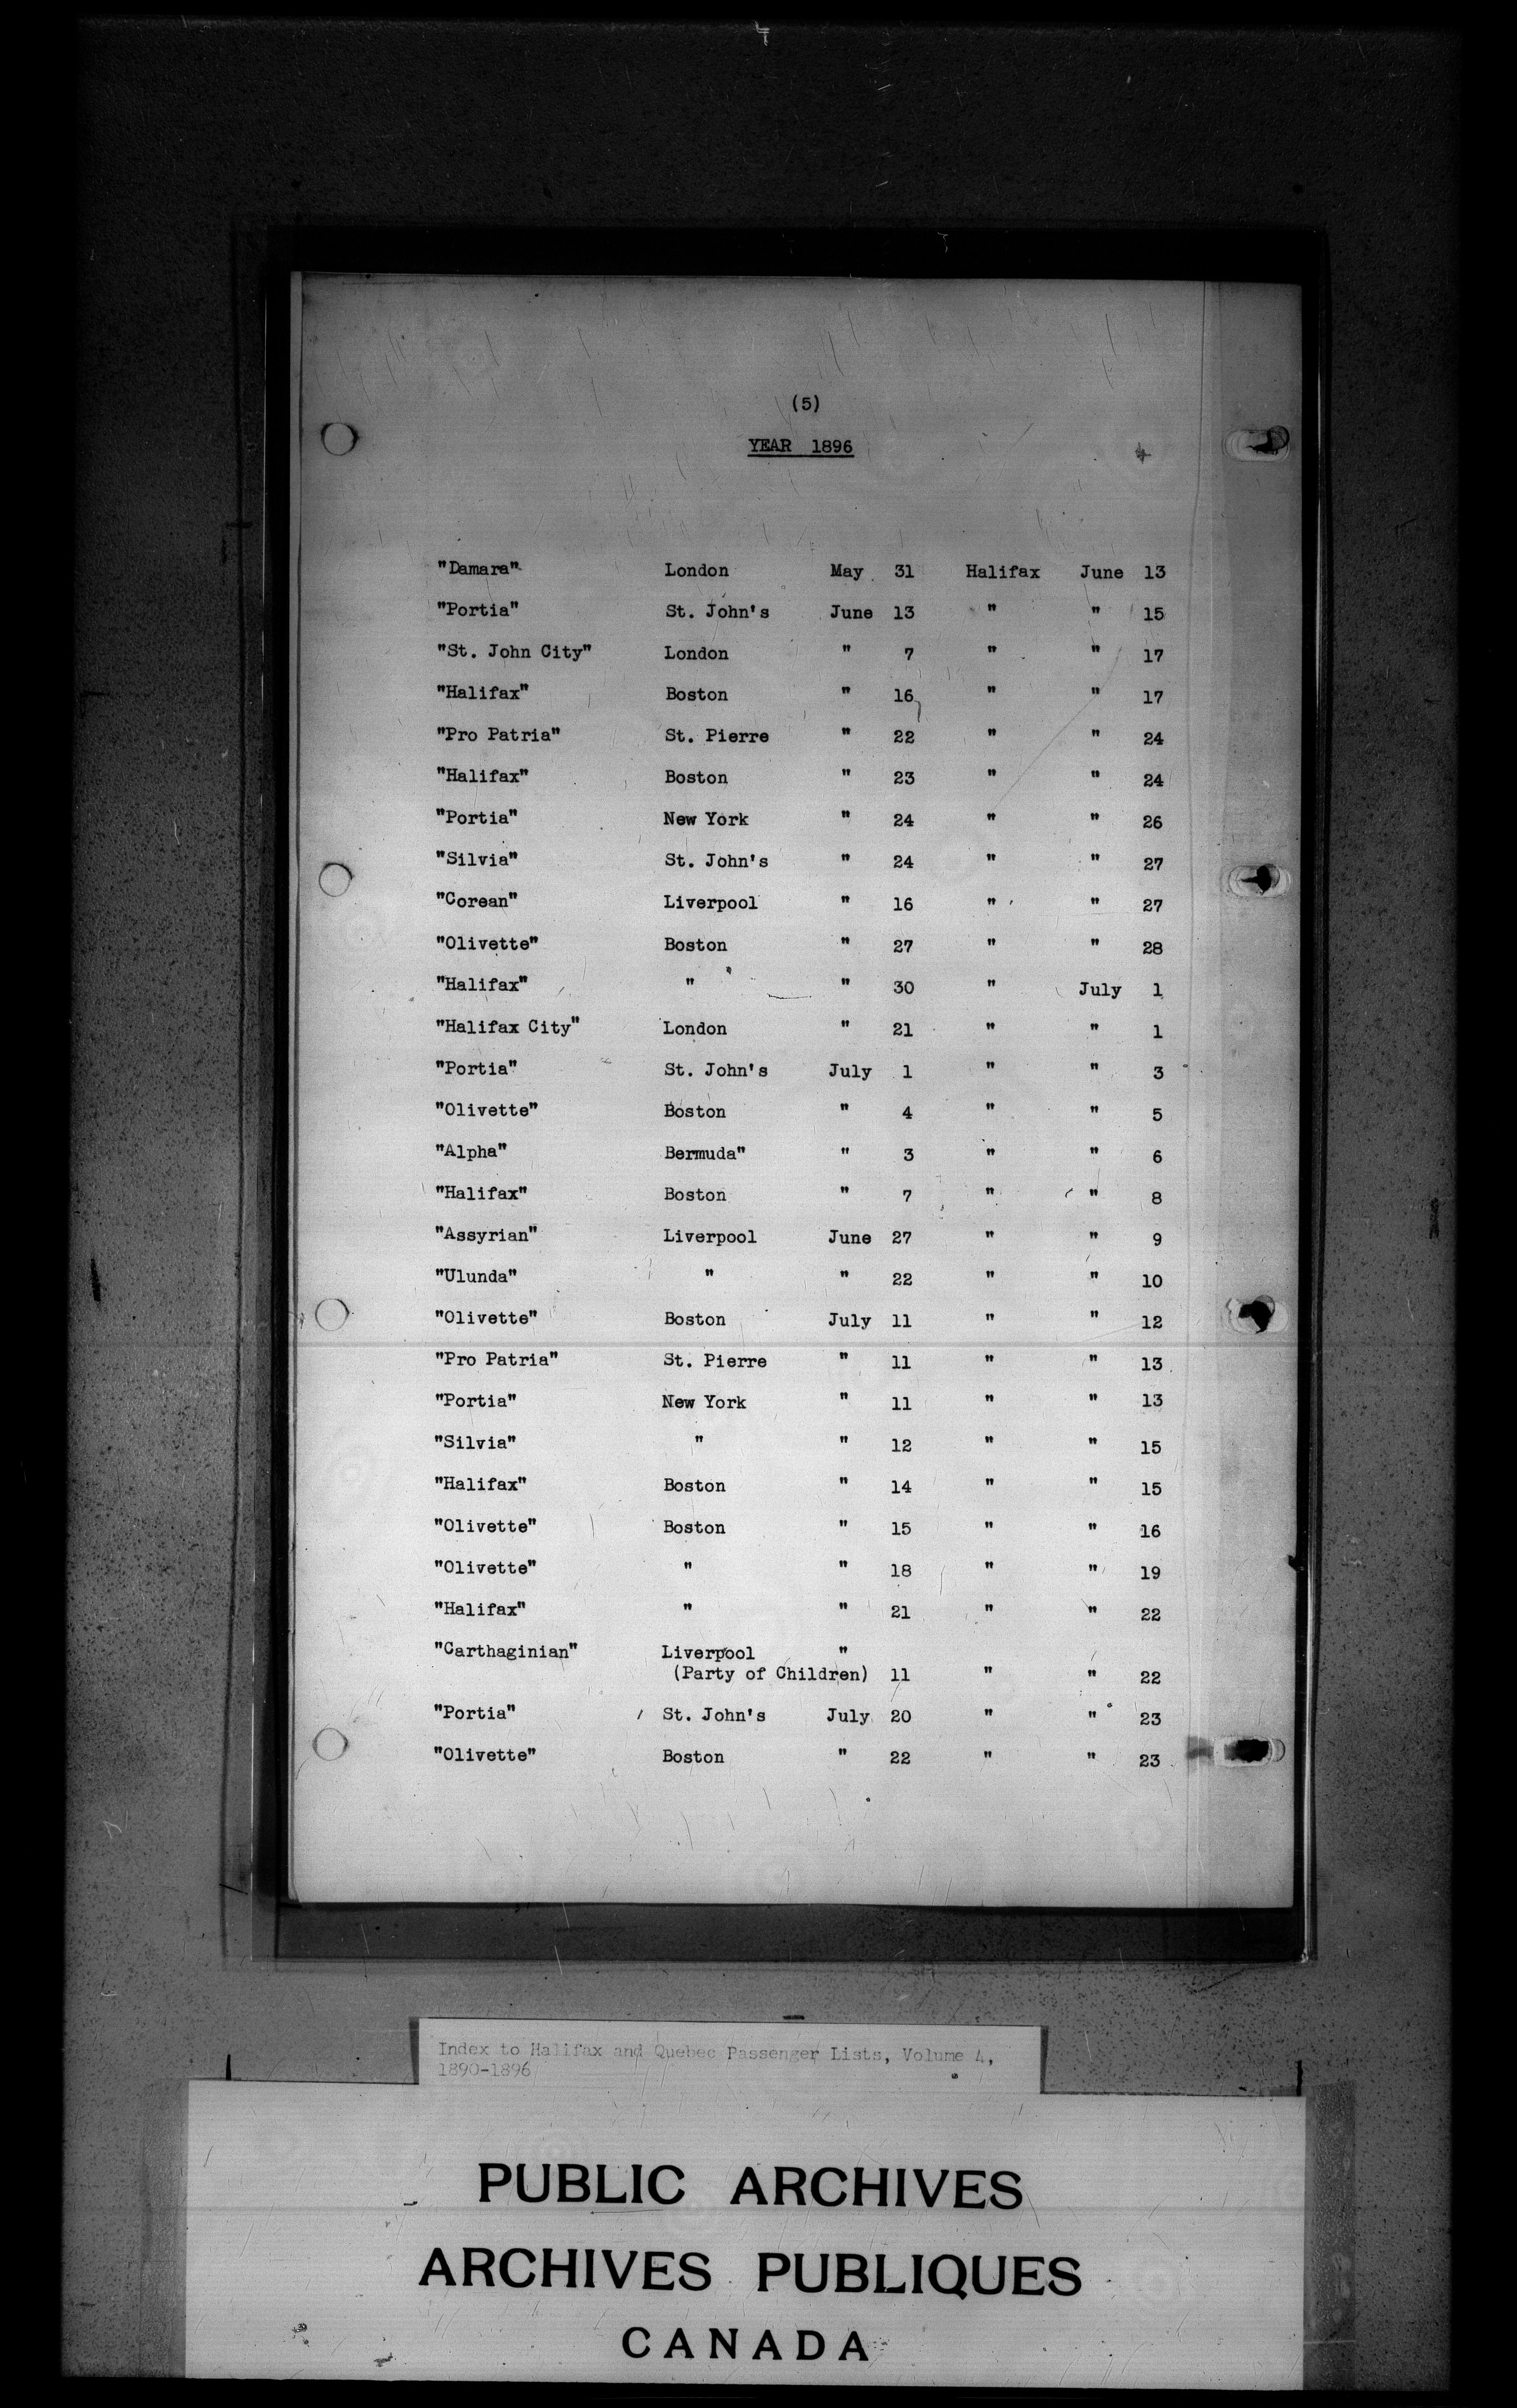 (5)
YEAR 1896
"Damara" London May 31 Halifax June 13
"Portia" St. John's June 13 " " 15
"St. John City" London " 7 " " 17
"Halifax" Boston " 16 " " 17
"Pro Patria" St. Pierre " 22 " " 24
"Halifax" Boston " 23 " " 24
"Portia" New York " 24 " " 26
"Silvia" St. John's " 24 " " 27
"Corean" Liverpool " 16 " " 27
"Olivette" Boston " 27 " " 28
"Halifax" " " 30 " July 1
"Halifax City" London " 21 " " 1
"Portia" St. John's July 1 " " 3
"Olivette" Boston " 4 " " 5
"Alpha" Bermuda" " 3 " " 6
"Halifax" Boston " 7 " " 8
"Assyrian" Liverpool June 27 " " 9
"Ulunda" " " 22 " " 10
"Olivette" Boston July 11 " " 12
"Pro Patria" St. Pierre " 11 " " 13
"Portia" New York " 11 " " 13
"Silvia" " " 12 " " 15
"Halifax" Boston " 14 " " 15
"Olivette" Boston " 15 " " 16
"Olivette" " " 18 " " 19
"Halifax" " " 21 " " 22
"Carthaginian" Liverpool "
(Party of Children) 11 " " 22
"Portia" St. John's July 20 " " 23
"Olivette" Boston " 22 " " 23
Index to Halifax and Quebec Passenger Lists, Volume 4,
1890-1896
PUBLIC ARCHIVES
ARCHIVES PUBLIQUES
CANADA